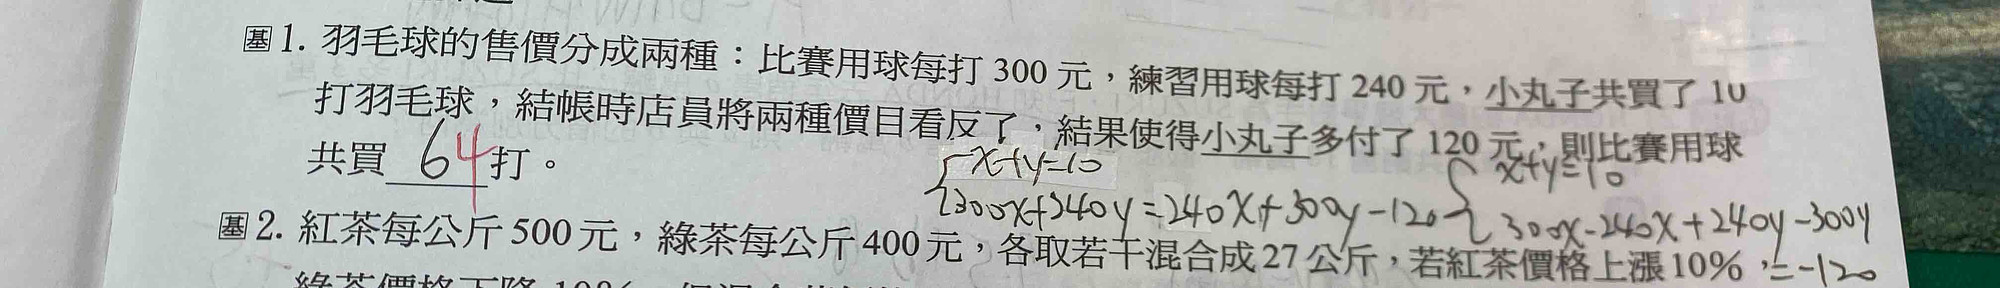 基 1. 羽毛球的售價分成兩種：比賽用球每打 300 元，練習用球每打 240 元，小丸子共買了 10
打羽毛球，結帳時店員將兩種價目看反了，結果使得小丸子多付了 120 元，則比賽用球
共買 6 4 打。
x+y=10
300x+240y=240x+300y-120
x+y=10
300x-240x+240y-300y
=-120
基 2. 紅茶每公斤 500 元，綠茶每公斤 400 元，各取若干混合成 27 公斤，若紅茶價格上漲 10%，
綠茶價格下降 10%